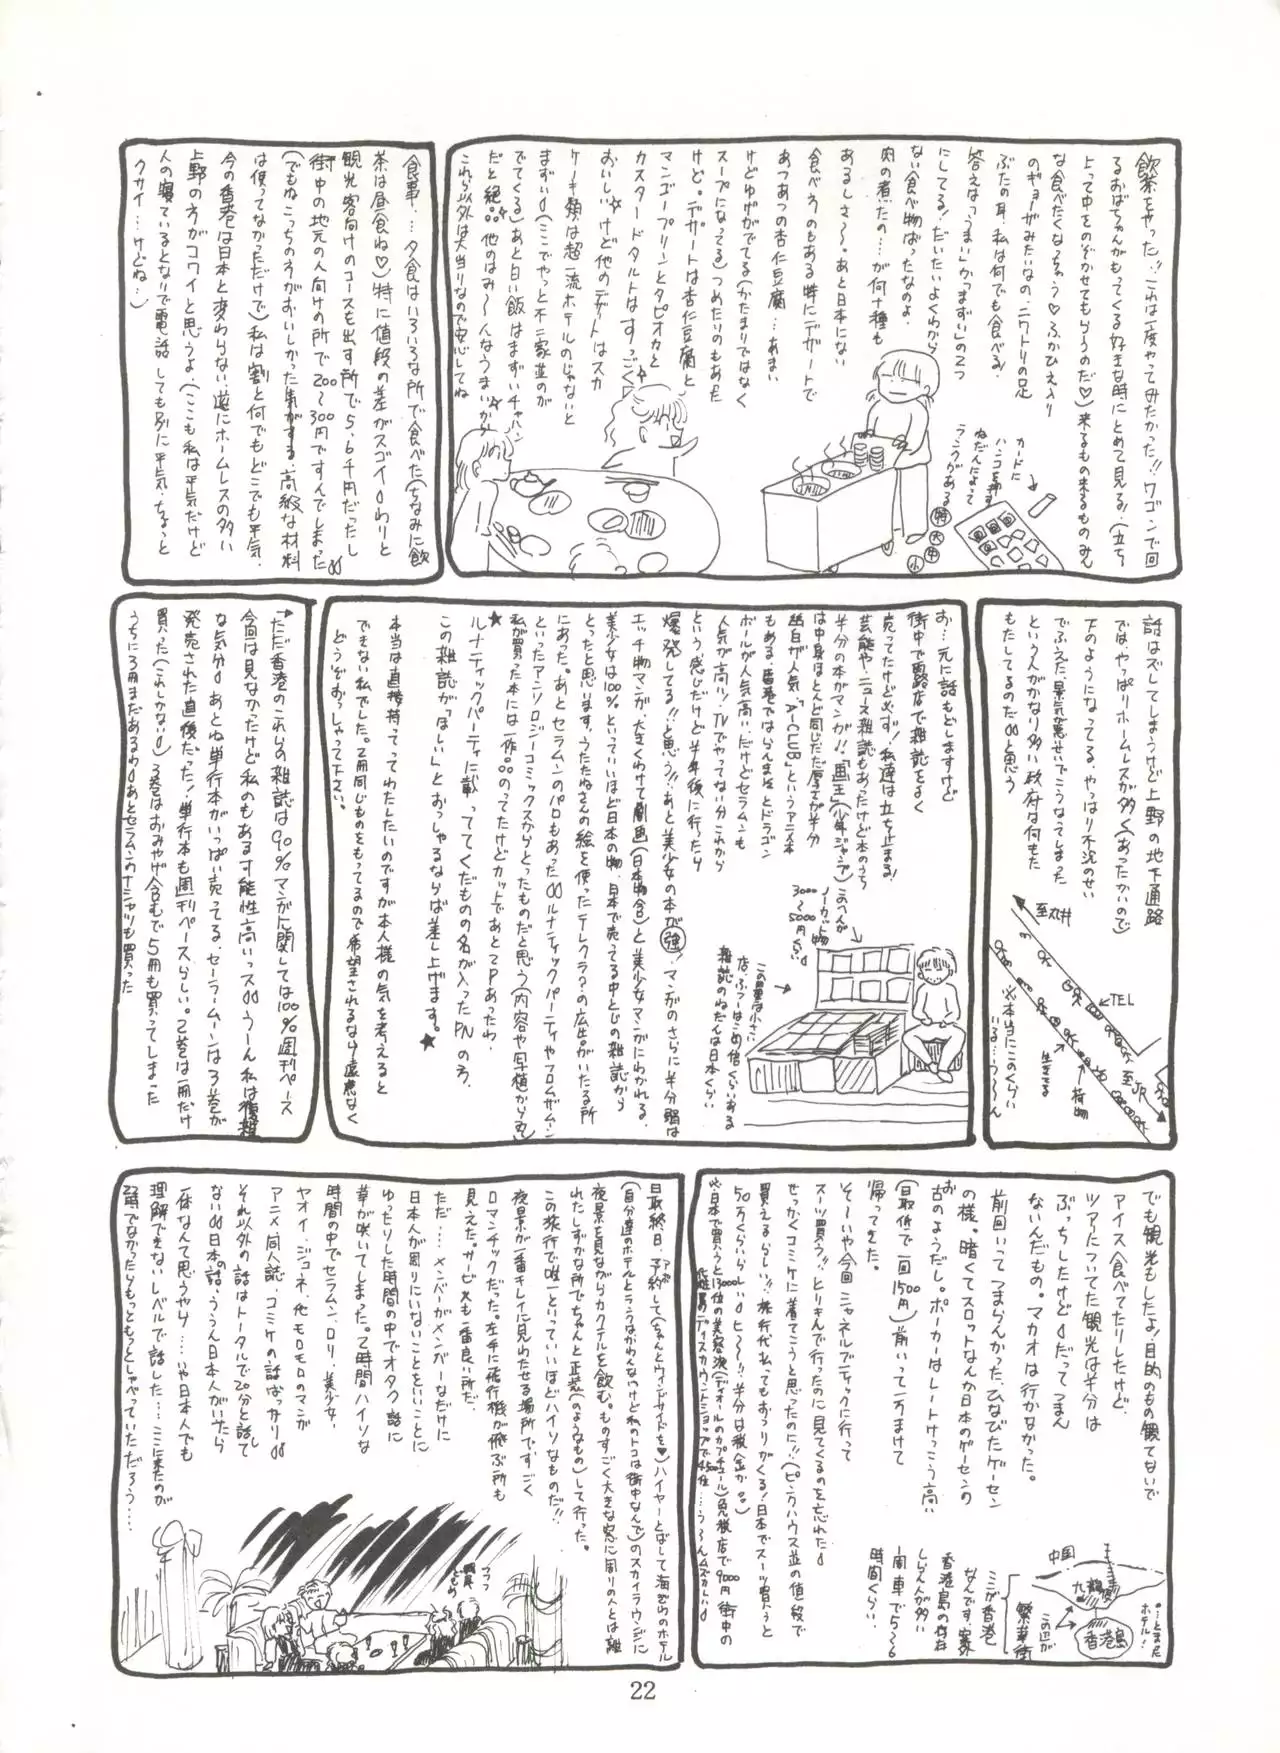 飲茶をやった!!これは一度やってみたかった!!ワゴンで回
るおばちゃんがもってくる好きな時にとめて見る!(立ち
よって中をのぞかせてもらうのだ♡)来るもの来るものみん
な食べたくなっちゃう♡ふかひれ入り
のギョーザみたいなの、ニワトリの足
ぶたの耳、私は何でも食べる!
答えは「うまい」か「まずい」の2つ
にしてる!だいたいよくわから
ない食べ物ばったなのよ、
肉の煮たの…が何十種も
あるしさ〜。あと日本にない
食べもろのもある特にデザートで
あつあつの杏仁豆腐…あまい
けどゆげがでてる(かたまりではなく
スープになってる)つめたいのもあった
けど。デザートは杏仁豆腐と
マンゴープリンとタピオカと
カスタードタルトはすっごく
おいしい☆けど他のデザートはスカ
ケーキ類は超一流ホテルのじゃないと
まずい(ここでやっと不二家並のが
でてくる)あと白い飯はまずいチャハン
だと絶品。他のはみ〜んなうまいから
これら以外は大当りなので安心してね
カードに
ハンコを押す
ねだんによって
ランクがある
特
大
中
小
食事…夕食はいろいろな所で食べた(ちなみに飲
茶は昼食ね♡)特に値段の差がスゴイわりと
観光客向けのコースも出す所で5、6千円だったし
街中の地元の人向けの所で200〜300円ですんでしまった
(でもねこっちの方がおいしかった気がする、高級な材料
は使ってなかっただけで)私は割と何でもどこでも平気。
今の香港は日本と変わらない、逆にホームレスの多い
上野の方がコワイと思うよ、(ここも私は平気だけど
人の寝ているとなりで電話しても別に平気、ちょっと
クサイ…けどね…)
話はズレてしまうけど上野の地下通路
ではやっぱりホームレスが多く(あったかいので)
下のようになってる。やっぱり不況のせい
でふえた、景気が悪せいでこうなってしまった
という人がかなり多い政府は何もた
もたしてるのだと思う
至丸井
←TEL
至JR
荷物
生きてる
※本当にこのくらい
いる…う〜ん
お…元に話もどしますけど
街中で露店で雑誌をよく
売ってたけど必ず!私達は立ち止まる!
芸能やニュース雑誌もあったけど本のうち
半分の本がマンガ!!「画王」(少年ジャンプ)
は中身ほとんど同じだだ厚さが半分
幽白が人気「A-CLUB」というアニメ本
もある。香港ではらんまとドラゴン
ボールが人気高い、だけどセラムンも
人気が高い。TVでやってない分これから
という感じだけど半年後に行ったら
爆発してる!!と思う!!あと美少女の本が強!マンガのさらに半分弱は
エッチ物マンガ、大きくわけて劇画(日本物含)と美少女マンガにわかれる。
美少女は100%といっていいほど日本の物、日本で売ってる中とじの雑誌から
とったと思います、うたたねさんの絵を使ったテレクラ?の広告がいたる所
にあった。あとセラムンのパロもあったルナティックパーティやフロムザムーン
といったアンソロジーコミックスからとったものだと思う(内容や写植から)
私が買った本には一作品のってたけどカットであと2Pあったわ、
★
ルナティックパーティに載っててくだもの名が入ったPNの方、
この雑誌が「ほしい」とおっしゃるならば差し上げます。★
本当は直接持ってってわたしたいのですが本人様の気を考えると
できない私でした。2冊同じものをもってるので希望されるなら遠慮なく
どうぞおっしゃって下さい。
このへんが
ノーカット物
3000〜5000円くらい
この露店は小さい
店。ふつーはこの倍くらいある
雑誌のねだんは日本くらい
★ただ香港のこれらの雑誌は90%マンガに関しては100%週刊ペース
今回は見なかったけど私のもある可能性高いっスうーん私は複雑
な気分。あとね単行本がいっぱい売ってる、セーラームーンは3巻が
発売された直後だった!単行本も週刊ペースらしい。2巻は一冊だけ
買った(これしかない)3巻はおみやげ含むで5冊も買ってしまった
うちに3冊まだあるわあとセラムンのTシャツも買った
でも観光もしたよ!目的のもの観てないで
アイス食べてたりしたけど、
ツアーについてた観光は半分は
ぶっちしたけどだってつまん
ないんだもの。マカオは行かなかった。
前回いってつまらんかった、ひなびたゲーセン
の様。暗くてスロットなんか日本のゲーセンの
お古のようだし。ポーカーはレートけっこう高い
(最低で一回1500円)前いって一万まけて
帰ってきた。
そ〜いや今回シャネルブティックに行って
スーツ買う!!とりきんで行ったのに見てくるのを忘れた
せっかくコミケに着てこうと思ったのに!!(ピンクハウス並の値段で
買えるらしい!!旅行代払ってもおつりがくる!日本でスーツ買うと
50万くらいらしいヒ〜!!半分は税金か。)
※日本で買うと13000位の美容液(ディオールのカプチュール)免税店で9000円街中の
化粧品のディスカウントショップで4500位…う〜んムズかしい
中国
九龍
香港島
とまった
ホテル!
この辺が
繁華街
ここが香港
なんです、家
香港島の存在
しらん人が多い
一周車で5〜6
時間ぐらい
最終日、予約して(ちゃんとウィンドサイドを♥)ハイヤーとばして海ぞいのホテル
(自分達のホテルとランクはかわんないけど私のトコは街中なんで)のスカイラウンジに
夜景を見ながらカクテルを飲む。ものすごく大きな窓に周りの人とは離
れたしずかな所でちゃんと正装(のようなもの)して行った。
この旅行で唯一といっていいほどハイソなものだ!!
夜景が一番キレイに見わたせる場所ですごく
ロマンチックだった。左手に飛行機が飛ぶ所も
見えた。ガーゼ犬も一番良い所だ、
ただ…メンバーがメンバーなだけに
日本人が周りにいないことをいいことに
ゆったりした時間の中でオタク話に
華が咲いてしまった。2時間ハイソな
時間の中でセラムン、ロリ、美少女、
ヤオイ、ジュネ、他モロモロのマンガ
アニメ同人誌、コミケの話ばっかり
それ以外の話はトータルで20分と話して
ない日本の話、ううん日本人がいたら
一体なんて思うやら…いや日本人でも
理解できないレベルで話した…ここに来たのが
2時でなかったらもっともっとしゃべっていただろう…
22